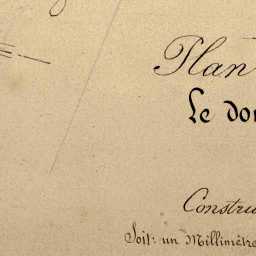 Plan
Le do
Constru
Soit: un Millimètre